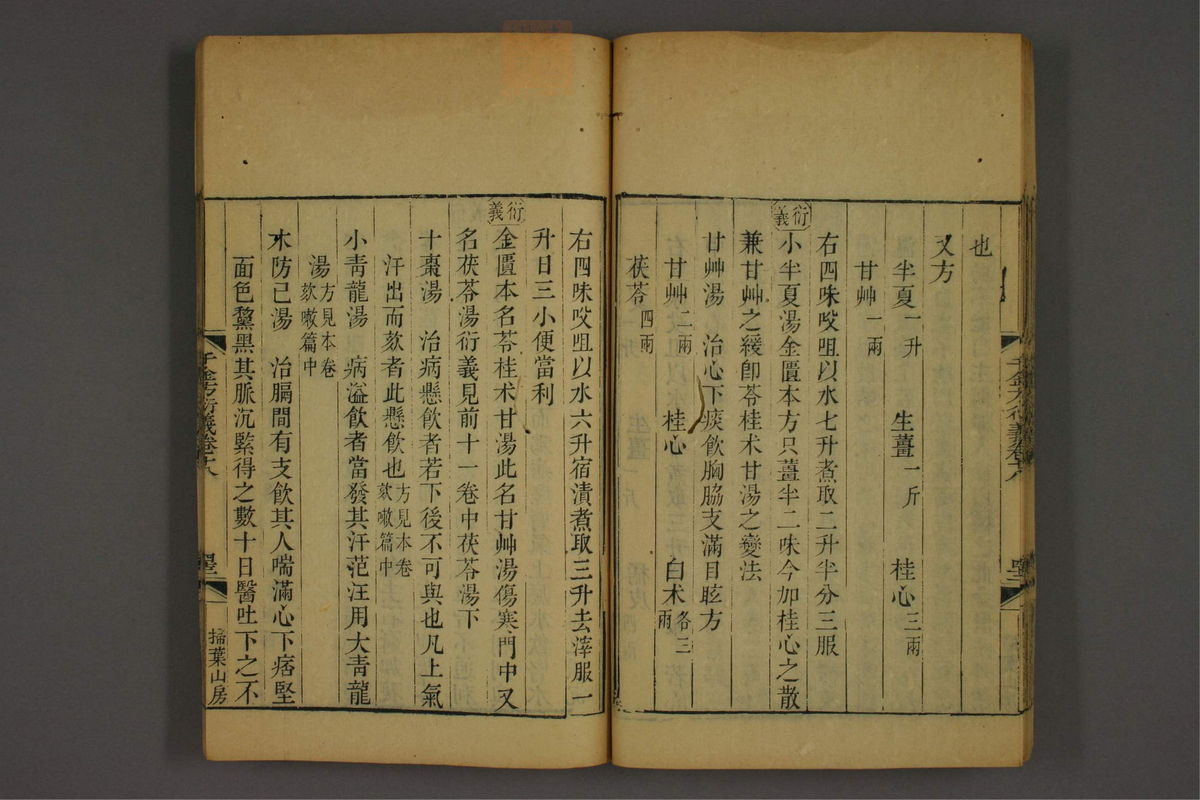 也
又方
半夏一升 生薑一斤 桂心三兩
甘艸一兩
右四味㕮咀以水七升煮取二升半分三服
衍義
小半夏湯金匱本方只薑半二味今加桂心之散
兼甘艸之緩卽苓桂术甘湯之變法
甘艸湯 治心下痰飲胸脇支滿目眩方
甘艸二兩 桂心 白术各三兩
茯苓四兩
右四味㕮咀以水六升宿漬煮取三升去滓服一
升日三小便當利
衍義
金匱本名苓桂术甘湯此名甘艸湯傷寒門中又
名茯苓湯衍義見前十一卷中茯苓湯下
十棗湯 治病懸飲者若下後不可與也凡上氣
汗出而欬者此懸飲也方見本卷欬嗽篇中
小青龍湯 病溢飲者當發其汗范汪用大青龍
湯方見本卷欬嗽篇中
木防己湯 治膈間有支飲其人喘滿心下痞堅
面色黧黑其脈沉緊得之數十日醫吐下之不
千金方衍義卷十八
掃葉山房
千金方衍義卷十八